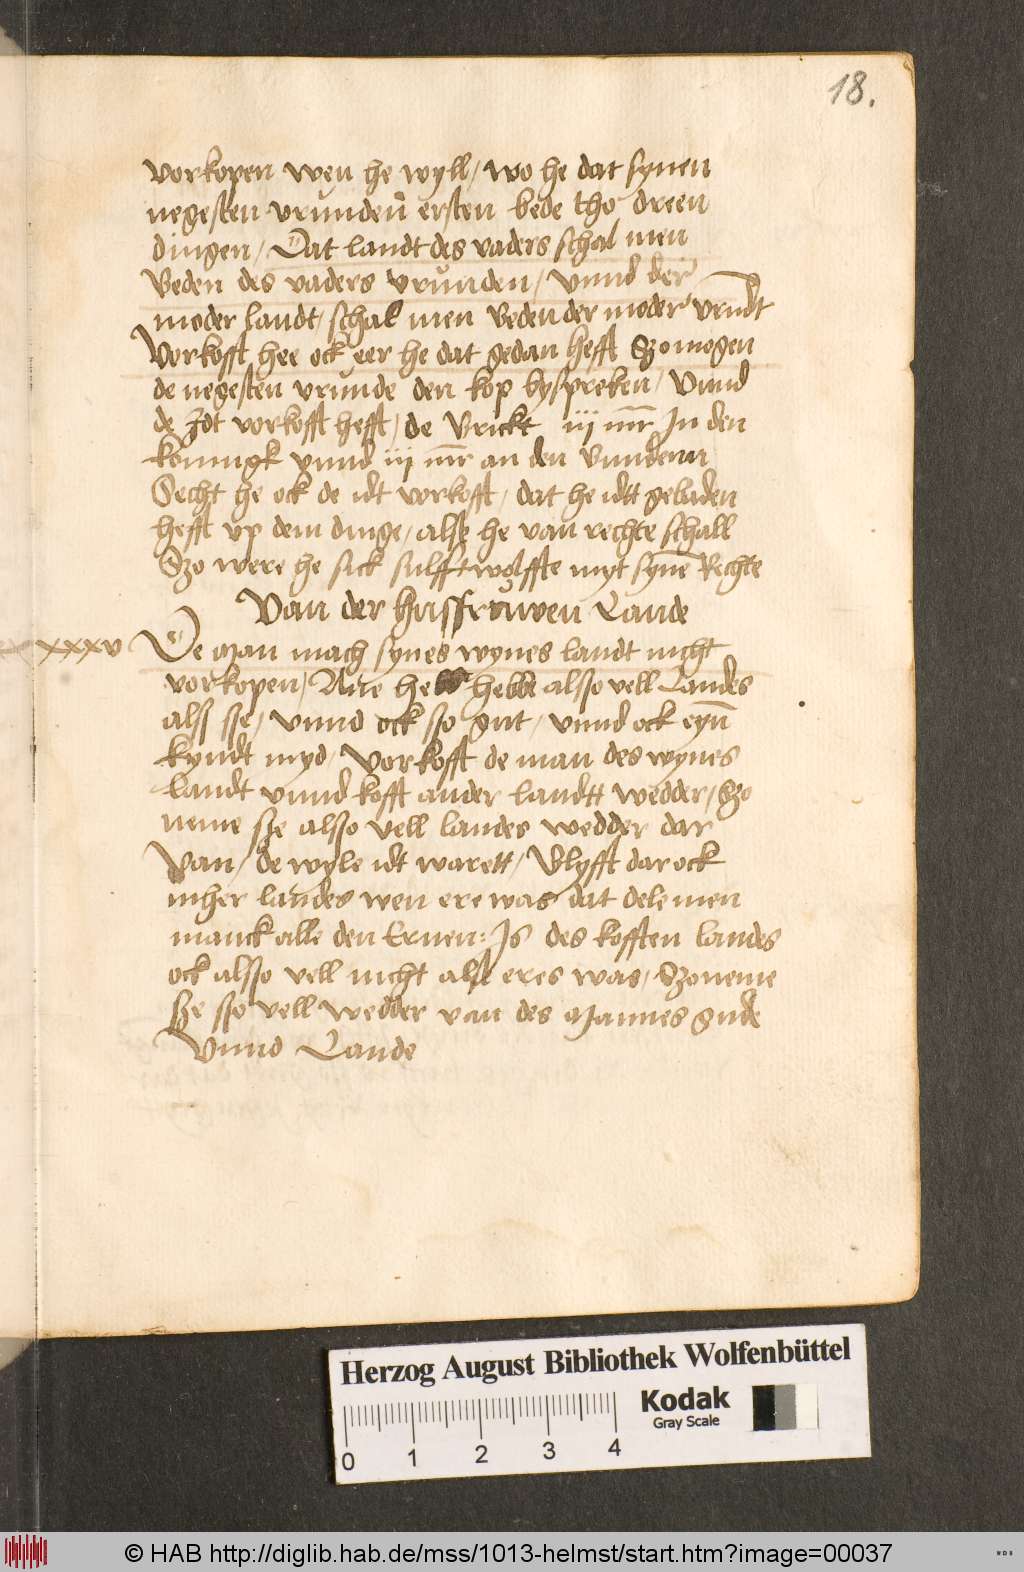 18.
vorkopen wen he wyll / wo he dat synen
negesten vrunden ersten bede tho dreen
dingen / Dat landt des vaders schal men
Beden des vaders vrunden / Vnnd der
moder landt / schal men Beden der moder vrundt
Vorkofft hee ock eer he dat gedan hefft Szo mogen
de negesten vrunde den kop byspreken / Vnnd
de Idt vorkofft hefft / de Brickt iij mr In den
koningk vnnd iij mr an den Vrunden
Secht he ock de idt vorkofft / dat he idtt gebaden
hefft vp dem dinge / alse he van rechte schall
Szo were he sick sulfft wolffte myt syne Rechte
Van der husfruwen Lande
xxxv De Man mach synes wyues landt nicht
vorkopen / Ane he hebbe also vell Landes
alss sse / vnnd ock sso gut / vnnd ock eyn
kyndt myd / Vorkofft de man des wyues
landt vnnd kofft ander landtt wedder / Szo
neme sze also vell landes wedder dar
Van / de wyle idt warett / Blyfft dar ock
mher landes wen ere was dat dele men
manck alle den Eruen : Is des kofften landes
ock alsso vell nicht alse eres was / Szo neme
sze sso vell wedder van des Mannes gude
Vnnd Lande
Herzog August Bibliothek Wolfenbüttel
Kodak
Gray Scale
0 1 2 3 4
© HAB http://diglib.hab.de/mss/1013-helmst/start.htm?image=00037